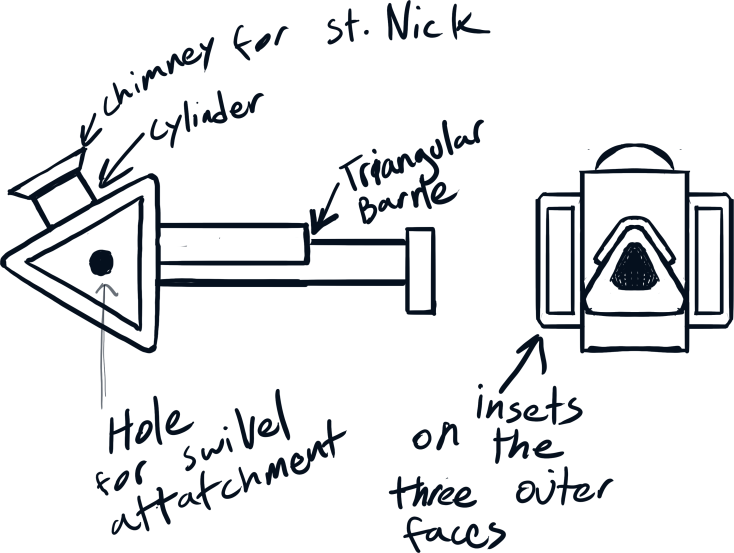 chimney for st. Nick
cylinder
Triangular
Barrle
Hole
for swivel
attatchment
insets
on the
three outer
faces